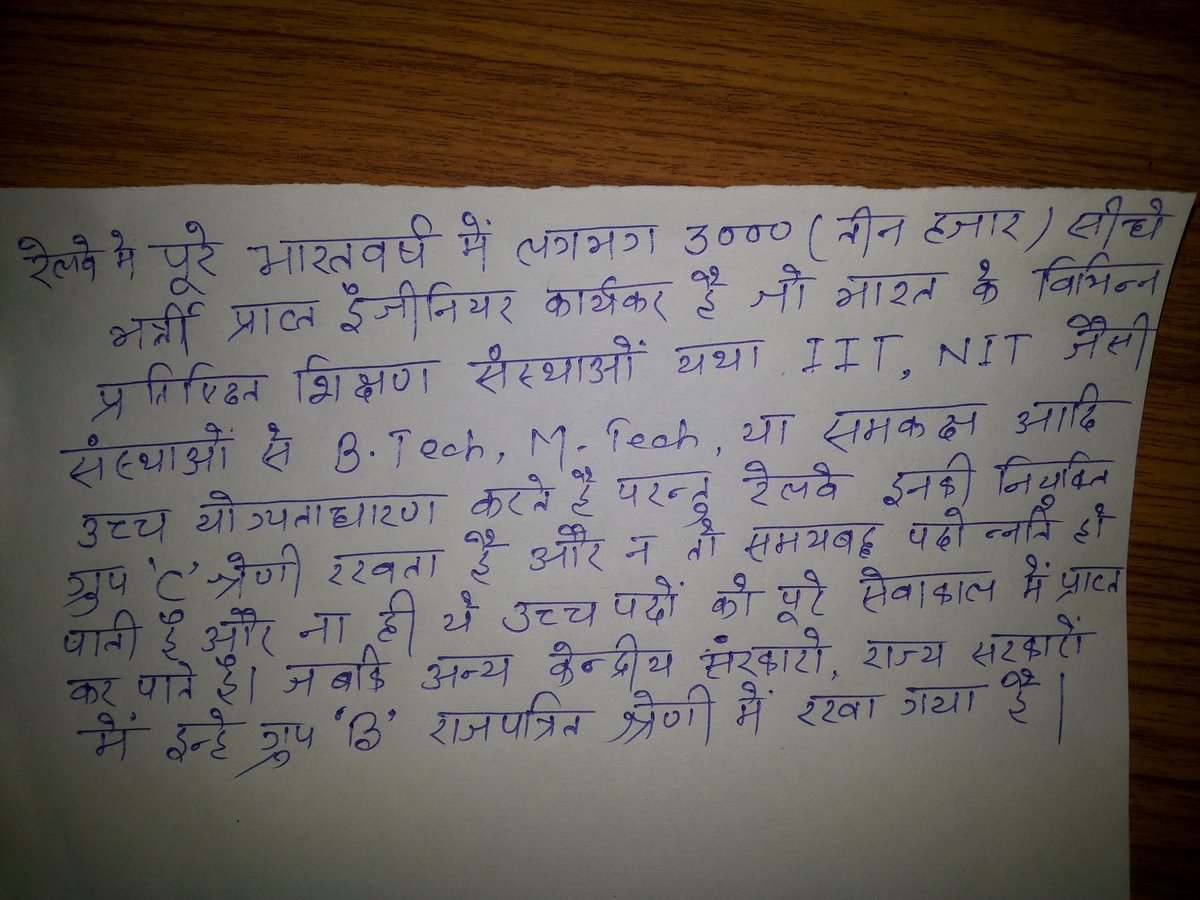 रेलवे मे पूरे भारतवर्ष में लगभग 3000 (तीन हजार) सीधे
भर्ती प्राप्त इंजीनियर कार्यकर है जो भारत के विभिन्न
प्रतिष्ठित शिक्षण संस्थाओं यथा IIT, NIT जैसी
संस्थाओं से B.Tech, M.Tech, या समकक्ष आदि
उच्च योग्यताधारण करते है परन्तु रेलवे इनकी नियुक्ति
ग्रुप 'C' श्रेणी रखता है और न तो समयबद्द पदोन्नति हो
पाती है और ना ही ये उच्च पदों को पूरे सेवाकाल में प्राप्त
कर पाते है। जबकि अन्य केन्द्रीय सरकारो, राज्य सरकारों
में इन्हे ग्रुप 'B' राजपत्रित श्रेणी में रखा गया है।